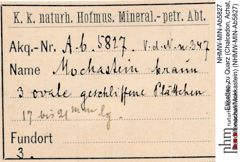 K. k. naturh. Hofmus. Mineral.- petr. Abt.
Akq.-Nr. A.b. 5827 V. d. N. n. 347
Name Mochastein braun
3 ovale geschliffene Plättchen
17 bis 21 mm lg.
Fundort
3.
NHMW-MIN-Ab5827
Etikette zu Quarz (Chalcedon, Achat,
NHMW-MIN-Ab5827
nhm